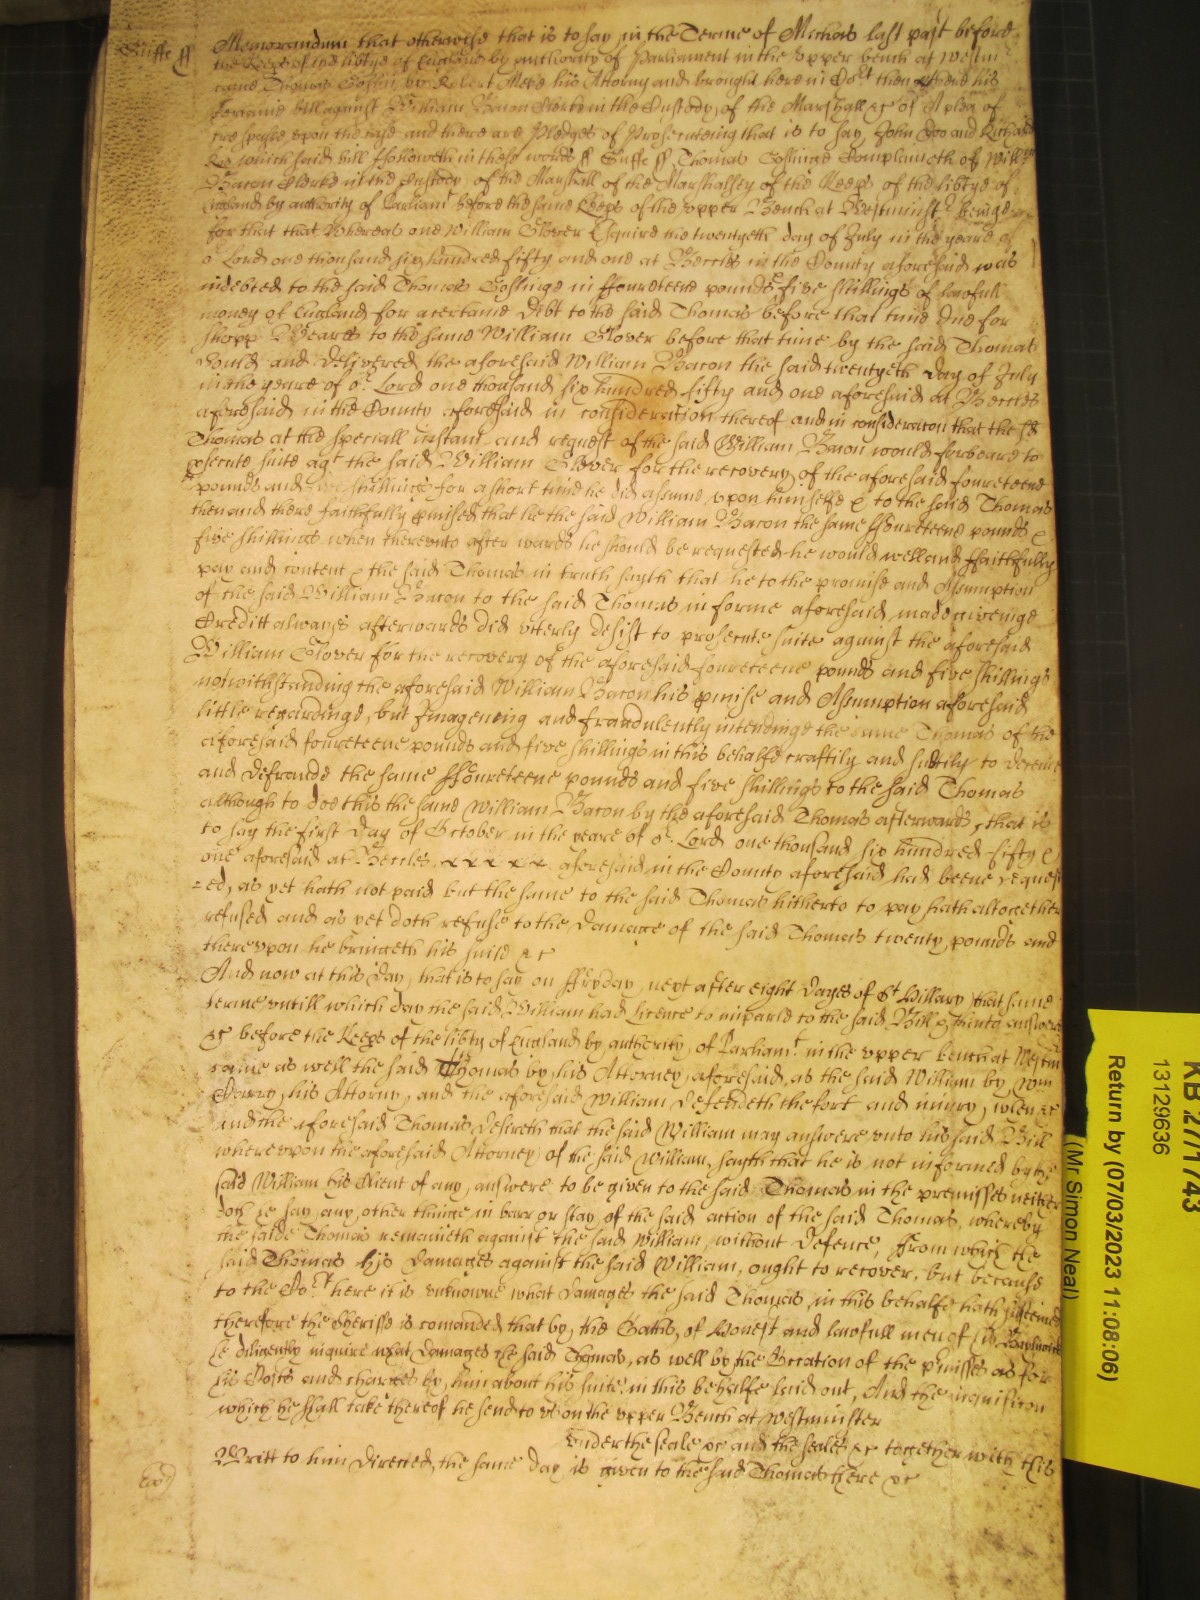 Suffe ss
Memorandum that otherwise that is to say in the Terme of Michas last past before
the Keeps of the libtye of England by authority of Parliament in the upper bench at Westm
came Thomas Gosling by Robert his Attorny and brought here in Cort then there his
certaine bill against William Bacon Clerke in the Custody of the Marshall &c of A plea of
trespasse upon the case and there are Pledges of Prosecuteing that is to say John Doo and Richard
Roo which said bill ffolloweth in these words ss Suffe ss Thomas Goslinge Complaineth of Willm
Bacon Clerke in the Custody of the Marshall of the Marshallsey of the Keeps of the libtye of
England by authority of Parliamt before the same Keeps of the upper Bench at Westminstr beinge
for that that Whereas one William Glover Esquire the twentyeth day of July in the yeare of
or Lord one thousand six hundred fifty and one at Beccles in the County aforesaid was
indebted to the said Thomas Goslinge in ffoureteene pounds & five shillings of lawfull
money of England for a certaine debt to the said Thomas before that time due for
to the same William Glover before that time by the said Thomas
sould and delivered the aforesaid William Bacon the said twentyeth day of July
in the yeare of or Lord one thousand six hundred fifty and one aforesaid at Beccles
aforesaid in the County aforesaid in consideration thereof and in consideracon that the sd
Thomas at the speciall instant and request of the said William Bacon would forbeare to
psecute suite agt the said William Glover for the recovery of the aforesaid foureteene
pounds and five shillings for a short time he did assume upon himselfe & to the said Thomas
then and there faithfully pmised that he the said William Bacon the same ffoureteene pounds &
five shillings when thereunto afterwards he should be requested he would well and ffaithfully
pay and content & the said Thomas in truth sayth that he to the promise and Assumption
of the said William Bacon to the said Thomas in forme aforesaid made giveinge
Creditt alwayes afterwards did utterly desist to prosecute suite against the aforesaid
William Glover for the recovery of the aforesaid foureteene pounds and five shillings
notwithstanding the aforesaid William Bacon his pmise and Assumption aforesaid
little regardinge, but Imageneing and fraudulently intendinge the same Thomas of the
aforesaid foureteene pounds and five shillings in this behalfe craftily and subtily to deceive
and defraude the same ffoureteene pounds and five shillings to the said Thomas
although to doe this the same William Bacon by the aforesaid Thomas afterwards, that is
to say the first day of October in the yeare of or Lord one thousand six hundred fifty &
one aforesaid at Beccles x x x x x aforesaid in the County aforesaid had beene request
=ed, as yet hath not paid but the same to the said Thomas hitherto to pay hath altogether
refused and as yet doth refuse to the damage of the said Thomas twenty pounds and
thereupon he bringeth his suite &c
And now at this day, that is to say on ffryday next after eight dayes of St Hillary that same
terme untill which day the said William had licence to imparle to the said Bill & thinto answere
&c before the Keeps of the libty of England by authority of Parliamt in the upper bench at Westm
came as well the said Thomas by his Attorney aforesaid, as the said William by Wm
his Attorny, and the aforesaid William defendeth the fort and iniury, when &c
and the aforesaid Thomas desireth that the said William may answere unto his said Bill
whereupon the aforesaid Attorney of the said William, sayth that he is not informed by the
said William his Client of any, answere to be given to the said Thomas in the premisses neither
doth he say any other thinge in barr or stay of the said action of the said Thomas, whereby
the saide Thomas remaineth against the said William, without defence, ffrom which the
said Thomas his damages against the said William, ought to recover, but because
to the Cort here it is unknowne what damages the said Thomas in this behalfe hath susteined
therefore the Sheriffe is comanded that by the Oaths, of honest and lawfull men of his Baylwick
he diligently inquire what damages the said Thomas, as well by the Occation of the pmisses as for
his Costs and charges by him about his suite in this behalfe laid out, And the inquisition
which he shall take thereof he send to us on the upper Bench at Westminster
under the seale &c and the seales &c together with this
Writt to him directed, the same day is given to the said Thomas there &c
KB 27/1743
13129636
Return by (07/03/2023 11:08:06)
(Mr Simon Neal)